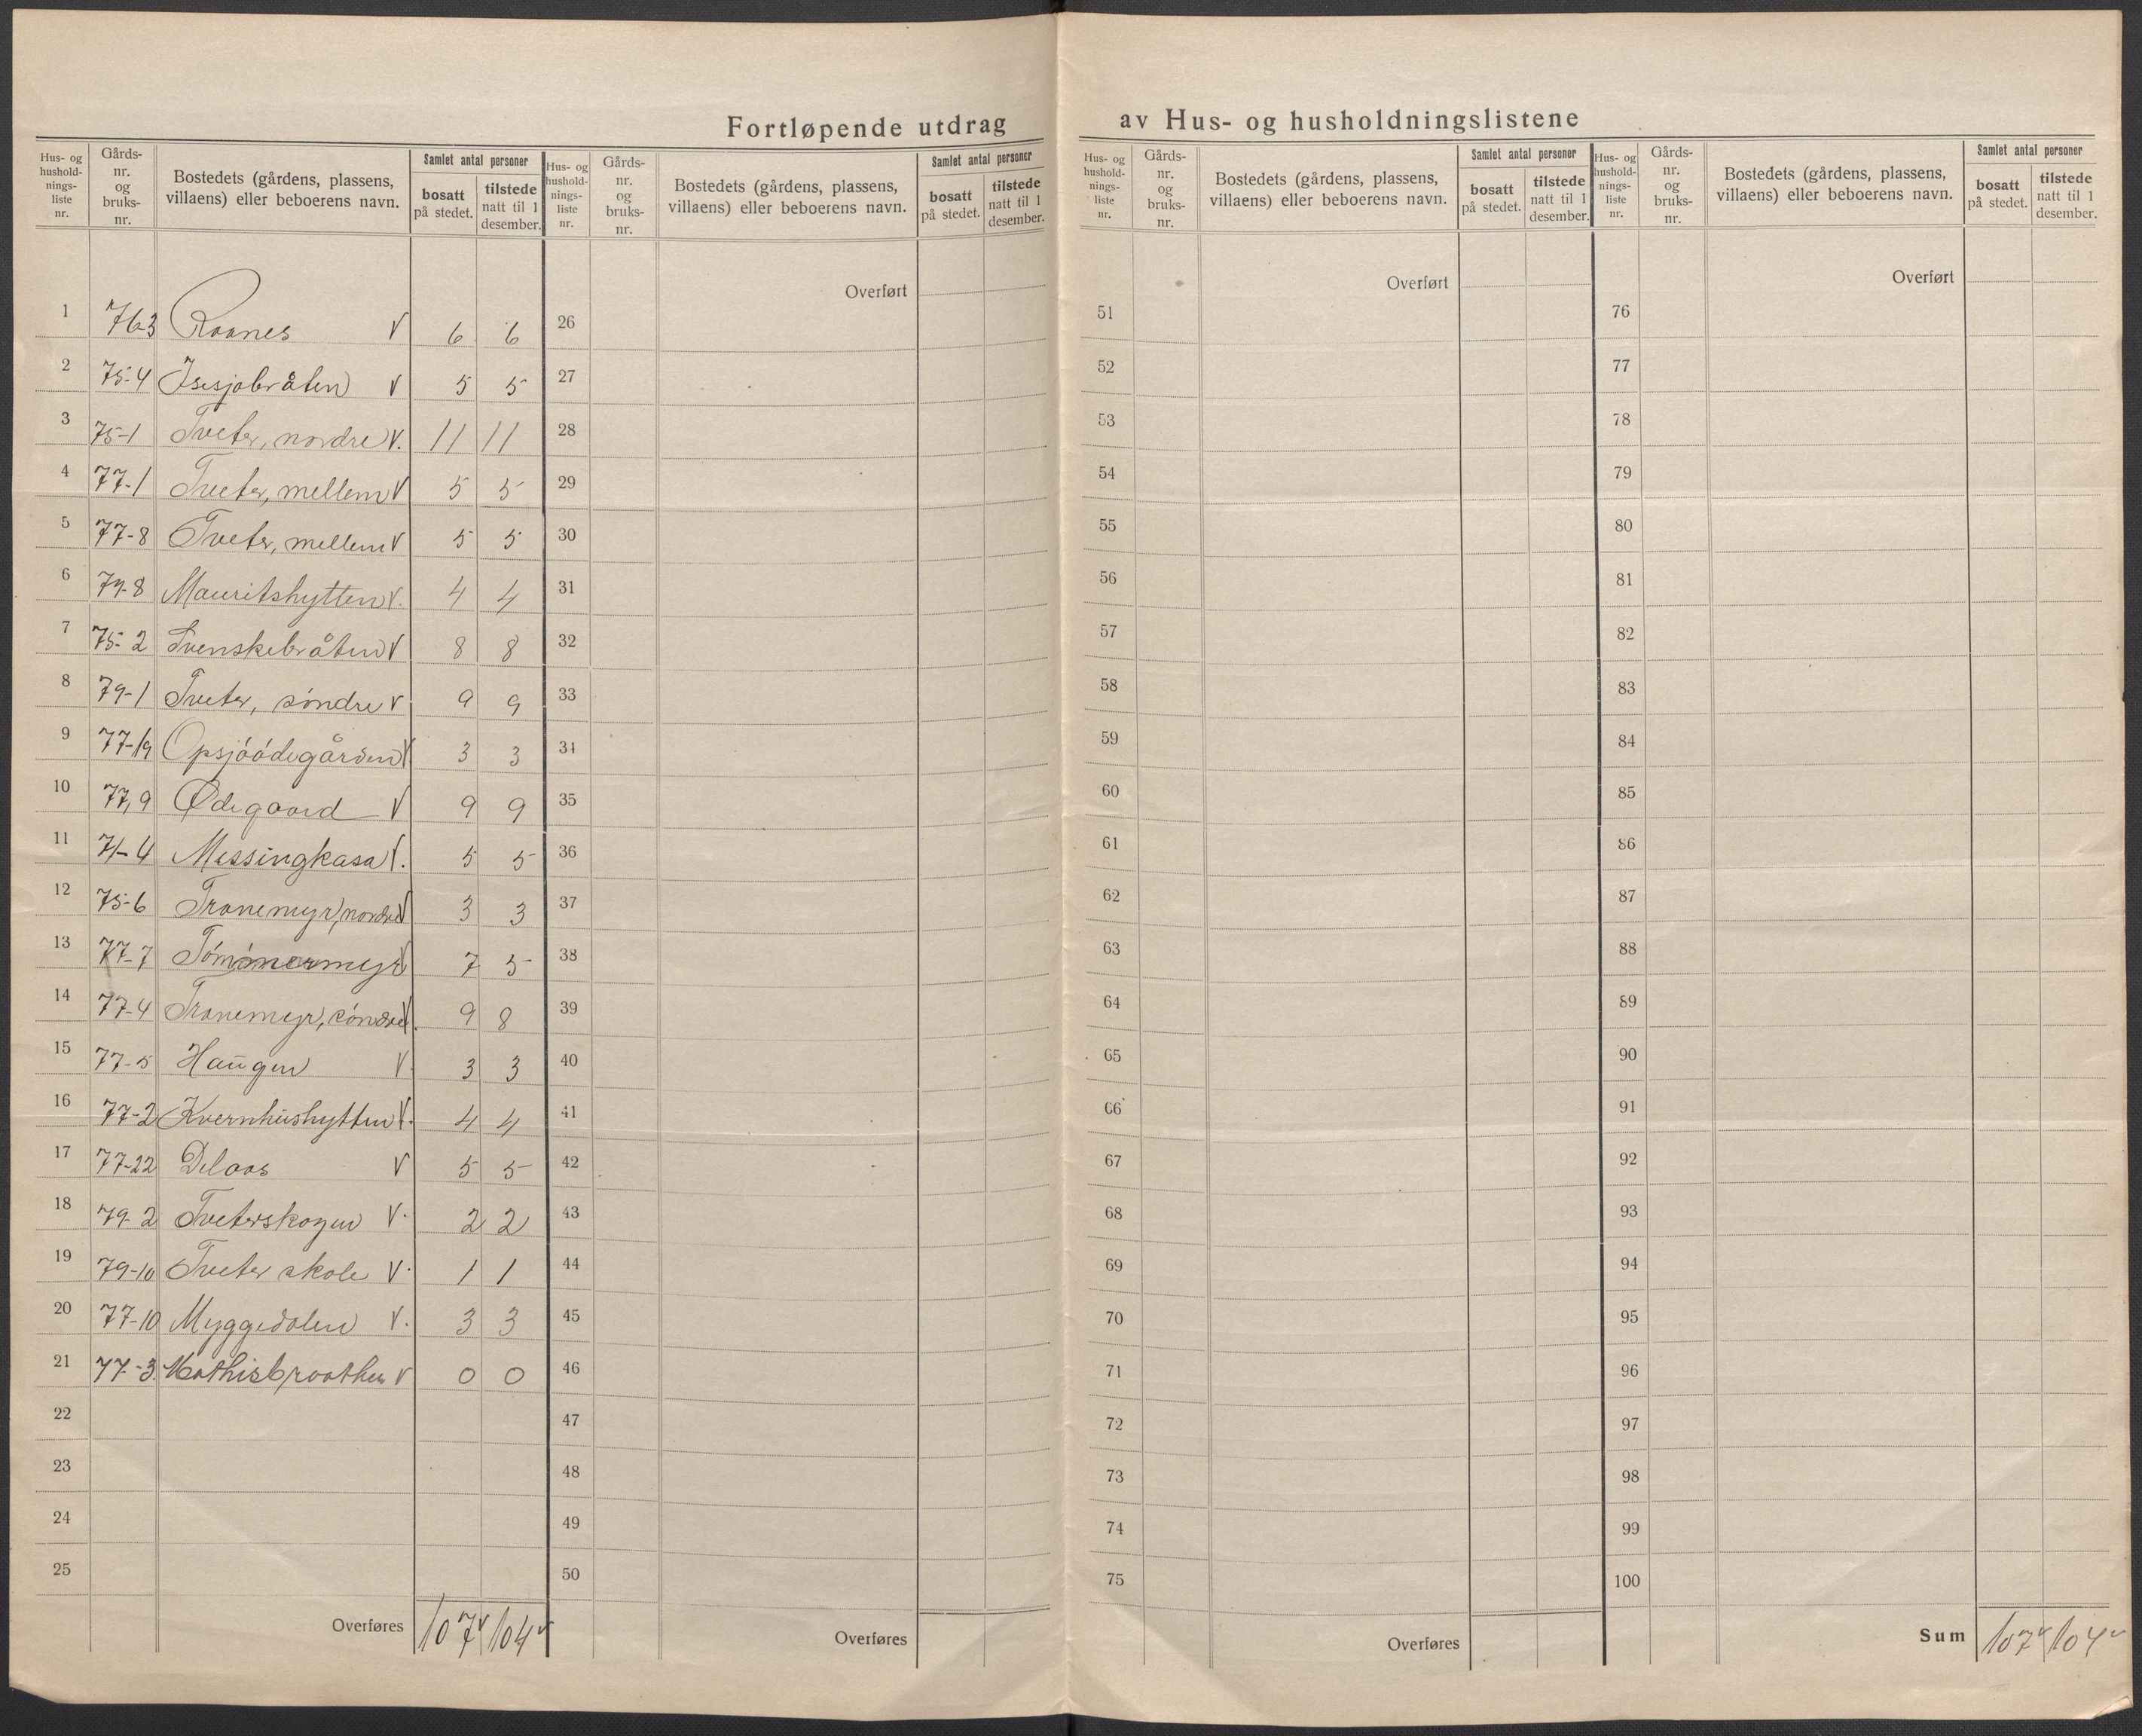 Fortløpende utdrag av Hus- og husholdningslistene
Hus- og hushold-nings-liste nr. Gårds-nr. og bruks-nr. Bostedets (gårdens, plassens, villaens) eller beboerens navn. Samlet antal personer bosatt på stedet. tilstede natt til 1 desember.
Hus- og hushold-nings-liste nr. Gårds-nr. og bruks-nr. Bostedets (gårdens, plassens, villaens) eller beboerens navn. Samlet antal personer bosatt på stedet. tilstede natt til 1 desember.
Hus- og hushold-nings-liste nr. Gårds-nr. og bruks-nr. Bostedets (gårdens, plassens, villaens) eller beboerens navn. Samlet antal personer bosatt på stedet. tilstede natt til 1 desember.
Hus- og hushold-nings-liste nr. Gårds-nr. og bruks-nr. Bostedets (gårdens, plassens, villaens) eller beboerens navn. Samlet antal personer bosatt på stedet. tilstede natt til 1 desember.
1 76-3 Raanes V 6 6
2 75-4 Isesjøbråten V 5 5
3 75-1 Tveter, nordre V. 11 11
4 77-1 Tveter, mellem V 5 5
5 77-8 Tveter, mellem V 5 5
6 79-8 Mauritshytten V. 4 4
7 75-2 Svenskebråten V 8 8
8 79-1 Tveter, søndre V 9 9
9 77-19 Opsjøødegården V 3 3
10 77,9 Ødegaard V 9 9
11 71-4 Messingkasa V. 5 5
12 75-6 Tranemyr, nordre V 3 3
13 77-7 V 7 5
14 77-4 Tranemyr, søndre V. 9 8
15 77-5 Haugen V. 3 3
16 77-2 Kvernhushytten V. 4 4
17 77-22 Delaas V 5 5
18 79-2 Tveterskogen V. 2 2
19 79-10 Tveter skole V. 1 1
20 77-10 Myggedalen V. 3 3
21 77-3. Mathisbraathen V 0 0
22
23
24
25
Overføres 107 V 104 V
Overført
26
27
28
29
30
31
32
33
34
35
36
37
38
39
40
41
42
43
44
45
46
47
48
49
50
Overføres
Overført
51
52
53
54
55
56
57
58
59
60
61
62
63
64
65
66
67
68
69
70
71
72
73
74
75
Overføres
Overført
76
77
78
79
80
81
82
83
84
85
86
87
88
89
90
91
92
93
94
95
96
97
98
99
100
Sum 107 V 104 V